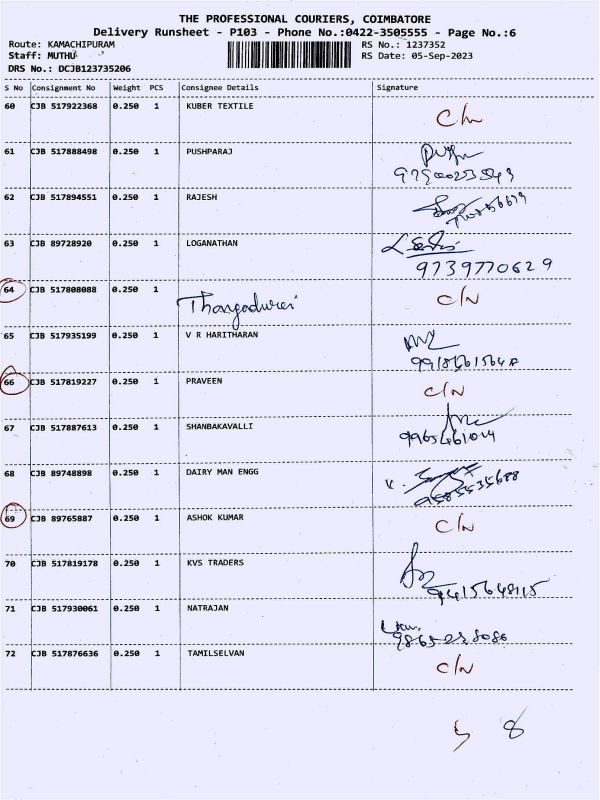 THE PROFESSIONAL COURIERS, COIMBATORE
Delivery Runsheet - P103 - Phone No.:0422-3505555 - Page No.:6
Route: KAMACHIPURAM RS No.: 1237352
Staff: MUTHU RS Date: 05-Sep-2023
DRS No.: DCJB123735206
S No Consignment No Weight PCS Consignee Details Signature
60 CJB 517922368 0.250 1 KUBER TEXTILE C/N
61 CJB 517888498 0.250 1 PUSHPARAJ
62 CJB 517894551 0.250 1 RAJESH
63 CJB 89728920 0.250 1 LOGANATHAN
9739770629
64 CJB 517808088 0.250 1 Thangadurai C/N
65 CJB 517935199 0.250 1 V R HARITHARAN
66 CJB 517819227 0.250 1 PRAVEEN C/N
67 CJB 517887613 0.250 1 SHANBAKAVALLI
68 CJB 89748898 0.250 1 DAIRY MAN ENGG
69 CJB 89765887 0.250 1 ASHOK KUMAR C/N
70 CJB 517819178 0.250 1 KVS TRADERS
71 CJB 517930061 0.250 1 NATRAJAN
72 CJB 517876636 0.250 1 TAMILSELVAN C/N
5 8